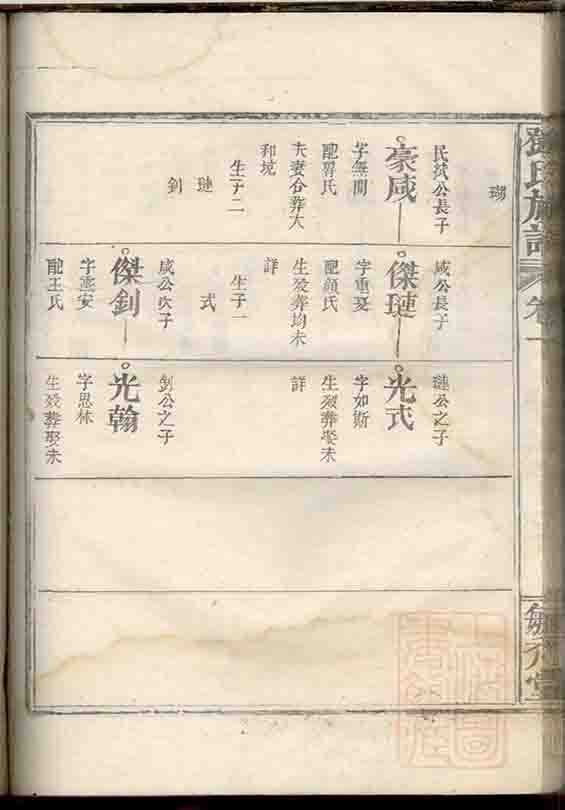 鄧氏族譜
卷一
瑚
民斌公長子
豪咸
字無間
配羅氏
夫妻合葬大
和境
生子二
璉
釗
咸公長子
傑璉
字重夏
配顏氏
生歿葬均未
詳
生子一
式
咸公次子
傑釗
字重安
配王氏
璉公之子
光式
字如斯
生歿葬娶未
詳
釗公之子
光翰
字思林
生歿葬娶未